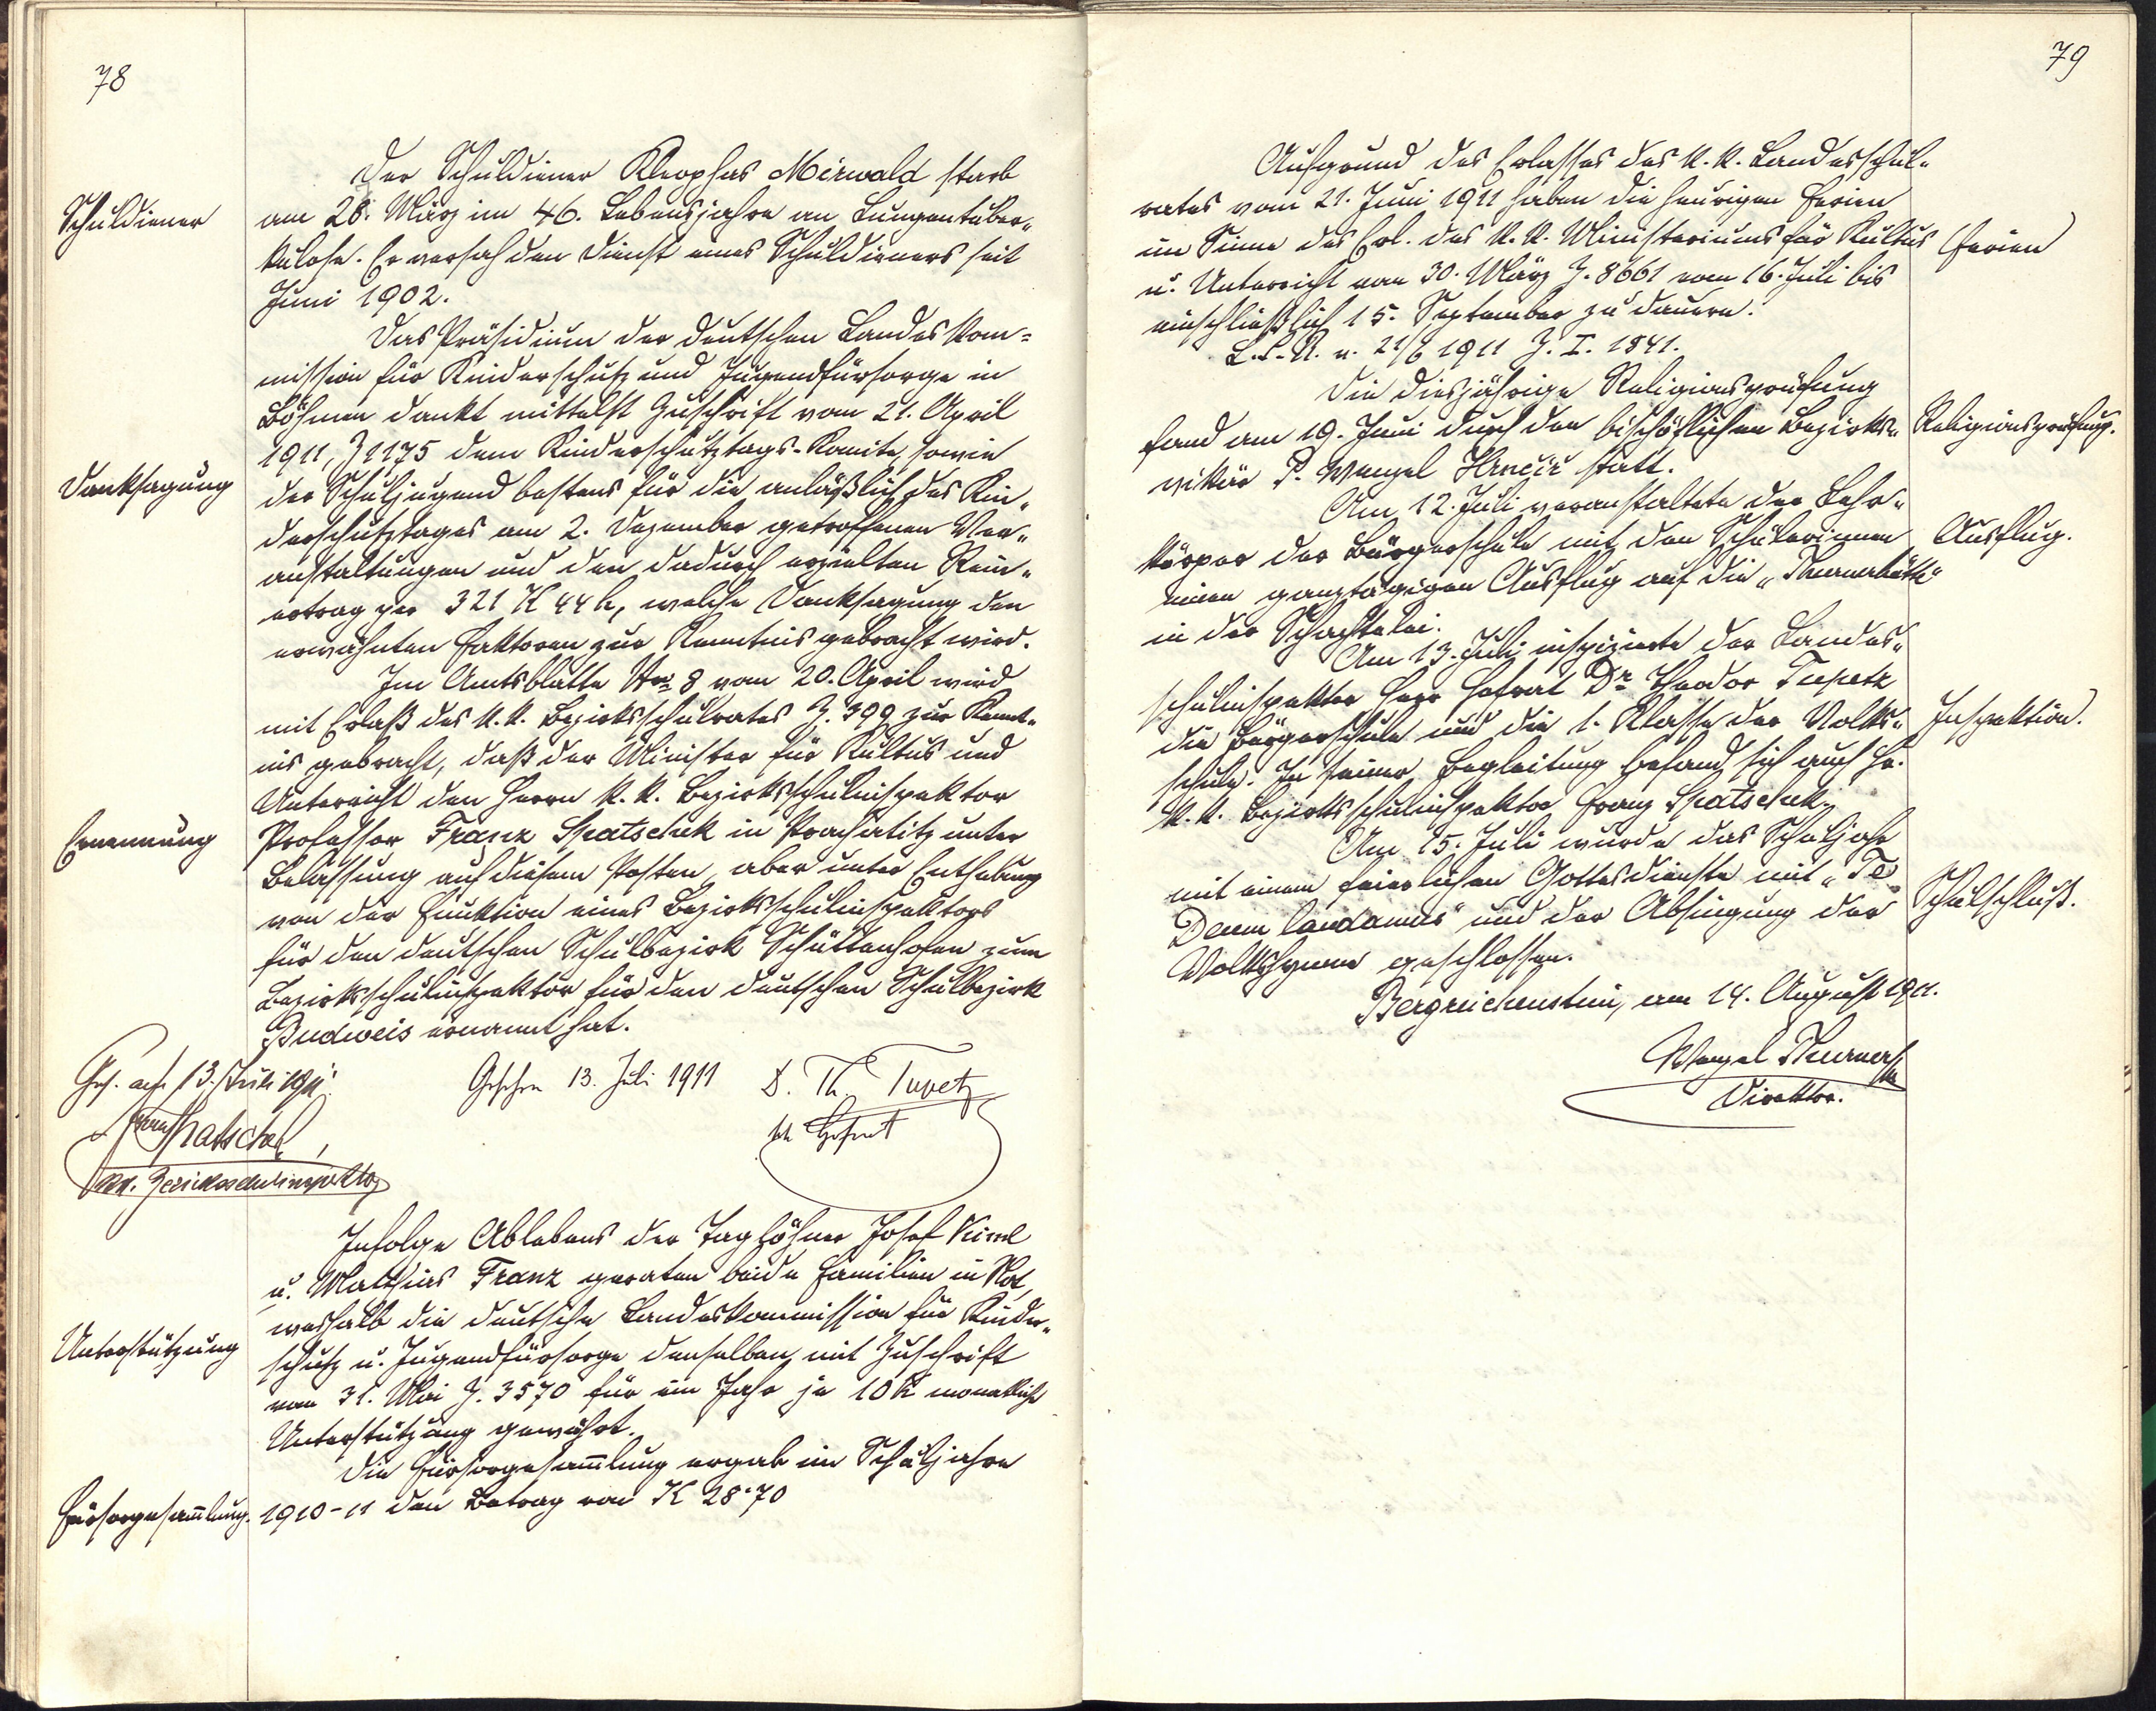 78
Der Schuldiener Kleophas Mirwald starb
Schuldiener
am 28. März im 46. Lebensjahre an Lungentuber„
kulose. Er versah den Dienst eines Schuldieners seit
Juni 1902.
Das Präsidium der deutschen Landeskom=
mission für Kinderschutz und Jugendfürsorge in
Böhmen dankt mittelst Zuschrift vom 21. April
1911, Z 1175 dem Kinderschutztags-Komite, sowie
Danksagung
der Schuljugend bestens für die anläßlich des Kin„
derschutztages am 2. Dezember getroffenen Ver„
anstaltungen und den dadurch erzielten Rein„
ertrag per 321 K 44 h, welche Danksagung den
erwähnten Faktoren zur Kenntnis gebracht wird.
Im Amtsblatte Nro 8 vom 20. April wird
mit Erlaß des k. k. Bezirksschulrates Z. 399 zur Kennt„
nis gebracht, daß der Minister für Kultus und
Unterricht den Herrn k. k. Bezirksschulinspektor
Ernennung
Professor Franz Spatschek in Prachatitz unter
Belassung auf diesem Posten, aber unter Enthebung
von der Funktion eines Bezirksschulinspektors
für den deutschen Schulbezirk Schüttenhofen zum
Bezirksschulinspektor für den deutschen Schulbezirk
Budweis ernannt hat.
Ges. am 13. Juli 1911.
Gesehen 13. Juli 1911
D. Th. Tupetz
Franz Spatschek,
kk Hofrat
kk. Bezirksschulinspektor
Infolge Ablebens der Taglöhner Josef
u. Mathias Franz geraten beide Familien in Not,
weshalb die deutsche Landeskommission für Kinder„
Unterstützung
schutz u. Jugendfürsorge denselben mit Zuschrift
vom 31. Mai Z. 3570 für ein Jahr je 10 K monatliche
Unterstützung gewährt.
Die Fürsorgesam̄lung ergab im Schuljahre
Fürsorgesam̄lung.
1910-11 den Betrag von K 28·70
79
Aufgrund des Erlasses des k. k. Landesschul„
rates vom 21. Juni 1911 haben die heurigen Ferien
im Sinne des Erl. des k. k. Ministeriums für Kultus
Ferien
u. Unterricht vom 30. März Z. 8661 vom 16. Juli bis
einschließlich 15. September zu dauern.
L.S.R. v. 21/6 1911 Z. I. 1841.
Die diesjährige Religionsprüfung
fand am 19. Juni durch den bischöflichen Bezirks„
Religionsprüfung.
vikär P. Wenzel Hrnčíř statt.
Am 12. Juli veranstaltete der Lehr„
körper der Bürgerschule mit den Schülerinnen
Ausflug.
einen ganztägigen Ausflug auf die „Thurnerhütte“
in der Schachtelei.
Am 13. Juli inspizierte der Landes„
schulinspektor Herr Hofrat Dr. Theodor Tupetz
die Bürgerschule und die 1. Klasse der Volks„
Inspektion.
schule. In seiner Begleitung befand sich auch Hr.
k. k. Bezirksschulinspektor Franz Spatschek.
Am 15. Juli wurde das Schuljahr
mit einem feierlichen Gottesdienste mit „Te
Schulschluß.
Deum laudamus“ und der Absingung der
Volkshymne geschlossen.
Bergreichenstein, am 14. August 1911.
Wenzel Thurner
Direktor.